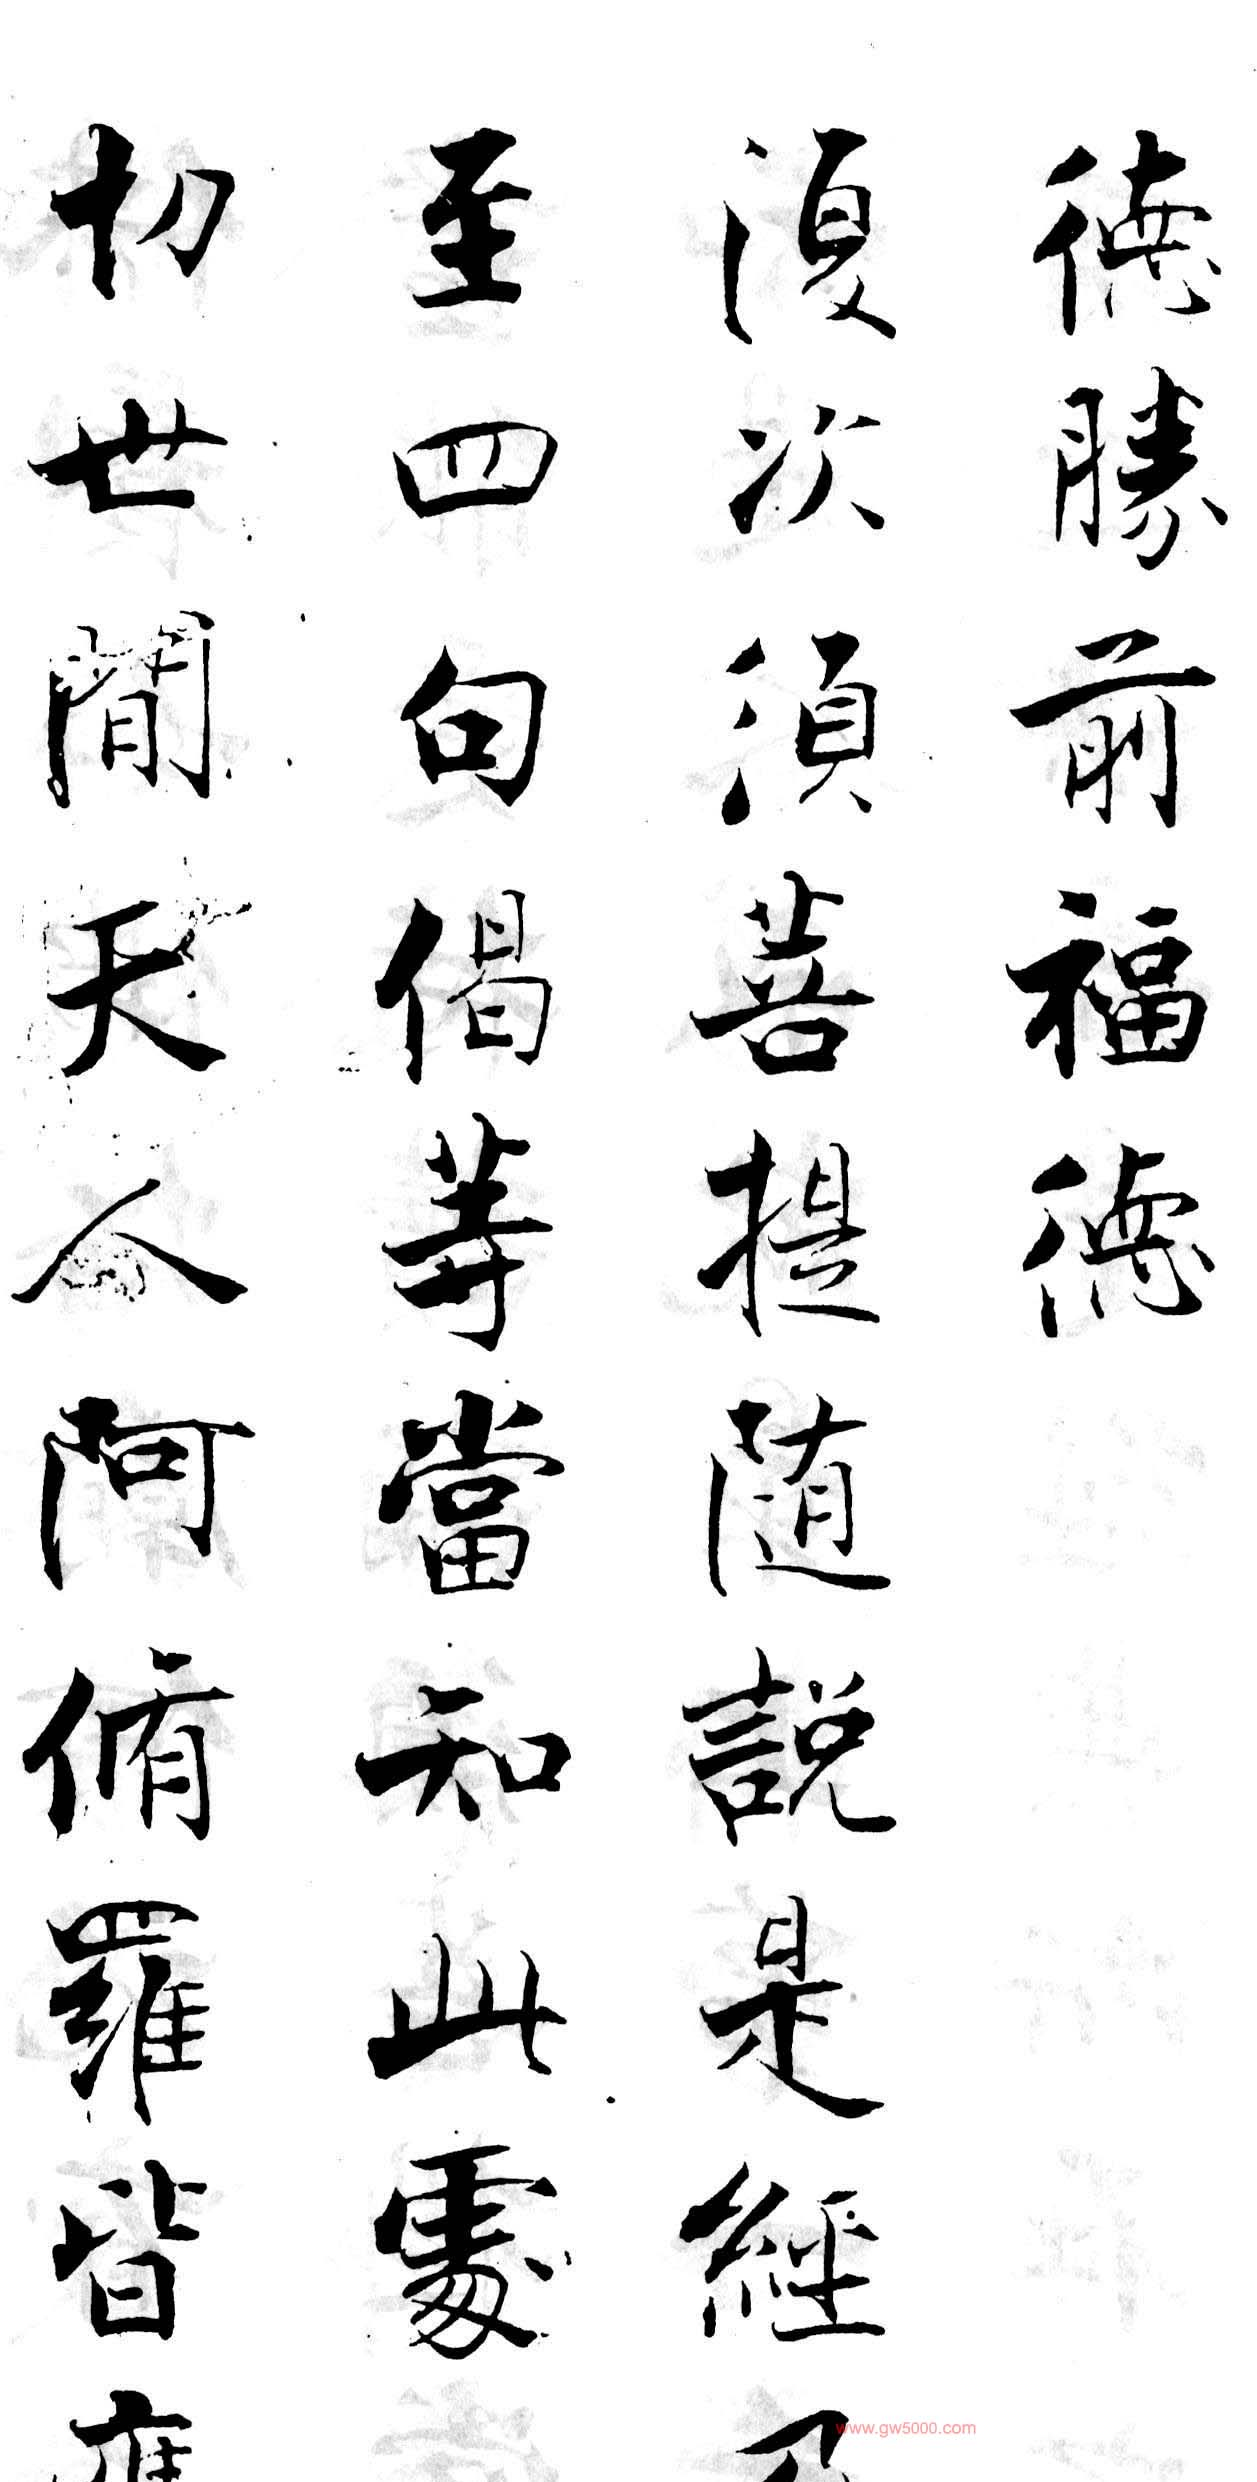 德勝前福德
復次須菩提隨說是經乃
至四句偈等當知此處
切世間天人阿脩羅皆應
www.gw5000.com